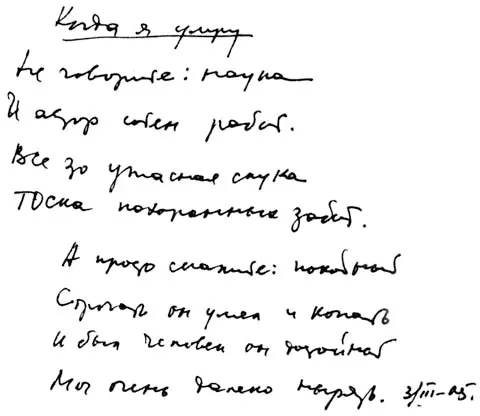 Когда я умру
Не говорите: наука
И автор сотен работ.
Все это ужасная скука
Тоска похоронных забот.
А просто скажите: покойный
Строгать он умел и копать
И был человек он достойный
Мог очень далеко нырять. 3/III-05.